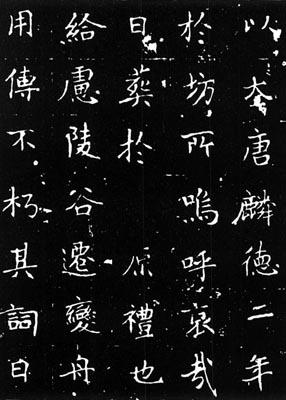 以大唐麟德二年
於坊所嗚呼哀哉
日葬於 原禮也
給慮陵谷遷變舟
用傳不朽其詞曰